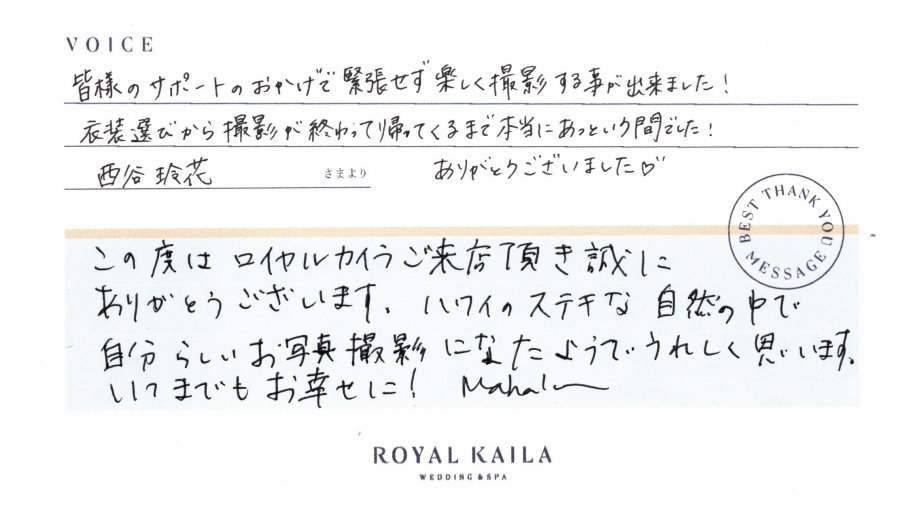 VOICE
皆様のサポートのおかげで緊張せず楽しく撮影する事が出来ました！
衣装選びから撮影が終わって帰ってくるまで本当にあっという間でした！
西谷 玲花 さまより ありがとうございました♡
BEST THANK YOU MESSAGE
この度は ロイヤルカイラご来店頂き誠に
ありがとうございます。ハワイのステキな自然の中で
自分らしいお写真撮影になったようでうれしく思います。
いつまでもお幸せに！ Mahalo
ROYAL KAILA
WEDDING & SPA